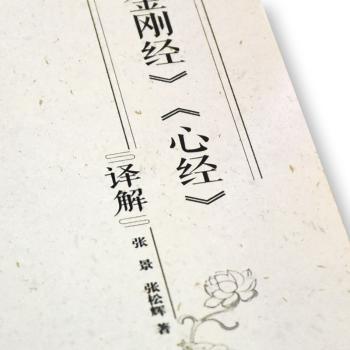 金刚经》
《心经》
译解
张景 张松辉 著